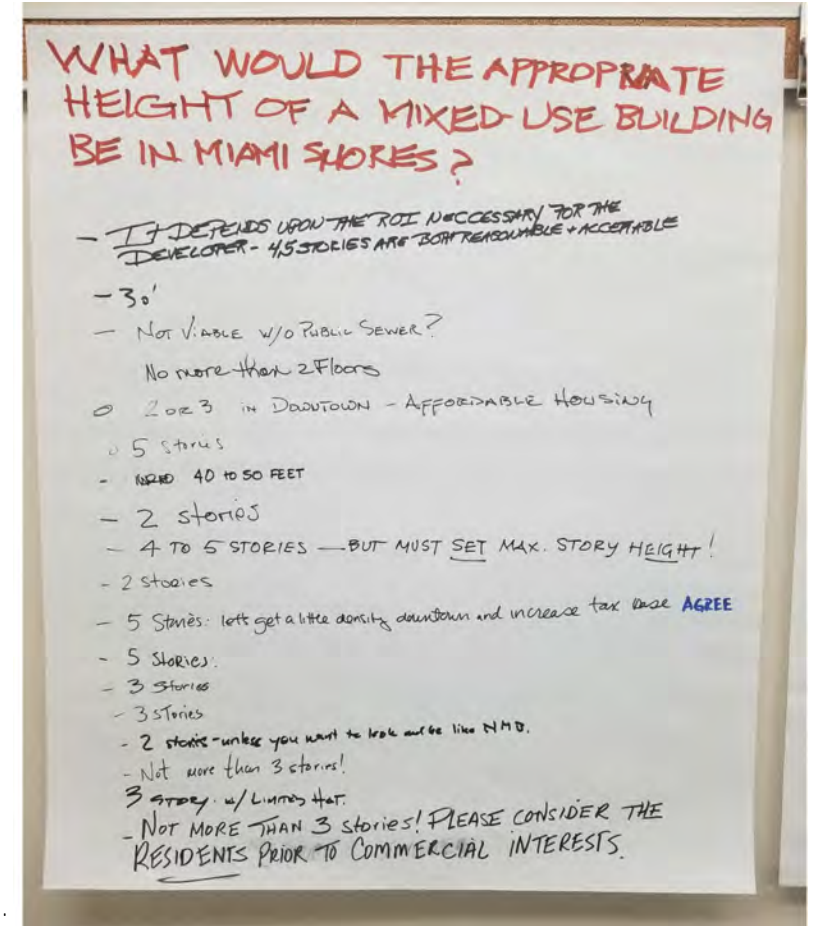 WHAT WOULD THE APPROPRIATE
HEIGHT OF A MIXED-USE BUILDING
BE IN MIAMI SHORES?
- IT DEPENDS UPON THE ROI NECCESSARY FOR THE
DEVELOPER - 4,5 STORIES ARE BOTH REASONABLE + ACCEPTABLE
- 30'
- NOT VIABLE W/O PUBLIC SEWER?
No more than 2 Floors
o 2 OR 3 IN DOWNTOWN - AFFORDABLE HOUSING
o 5 Stories
- 40 to 50 FEET
- 2 stories
- 4 TO 5 STORIES — BUT MUST SET MAX. STORY HEIGHT!
- 2 Stories
- 5 Stories: lett's get a little density downtown and increase tax base AGREE
- 5 Stories.
- 3 Stories
- 3 STories
- 2 stories - unless you want to look and be like NMB.
- Not more than 3 stories!
3 STORY w/ LIMITED
- NOT MORE THAN 3 stories! PLEASE CONSIDER THE
RESIDENTS PRIOR TO COMMERCIAL INTERESTS.